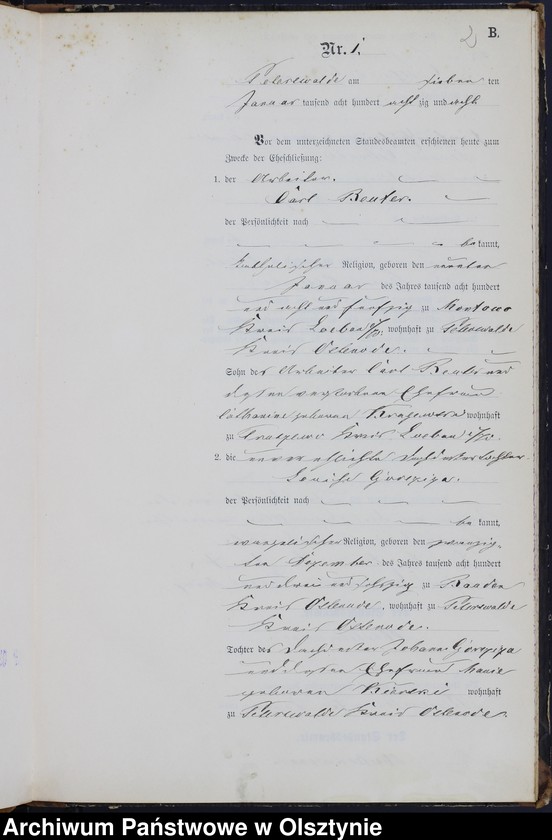 2
B.
Nr. 1.
Peterswalde am sieben ten
Januar tausend acht hundert acht zig und acht
Vor dem unterzeichneten Standesbeamten erschienen heute zum
Zwecke der Eheschließung:
1. der Arbeiter
Carl Reuter.
der Persönlichkeit nach
bekannt,
katholischer Religion, geboren den
Januar des Jahres tausend acht hundert
und acht und fünfzig zu
Kreis Loebau, wohnhaft zu Peterswalde
Kreis Osterode.
Sohn des Arbeiter Carl Reuter und
dessen verstorbene Ehefrau
Catharine geborene wohnhaft
zu Kreis Loebau
2. die
Louise
der Persönlichkeit nach
bekannt,
evangelischer Religion, geboren den zwanzig-
ten des Jahres tausend acht hundert
und drei und sechszig zu
Kreis Osterode, wohnhaft zu Peterswalde
Kreis Osterode.
Tochter des Johann
und dessen Ehefrau Marie
geborene wohnhaft
zu Peterswalde Kreis Osterode.
Archiwum Państwowe w Olsztynie